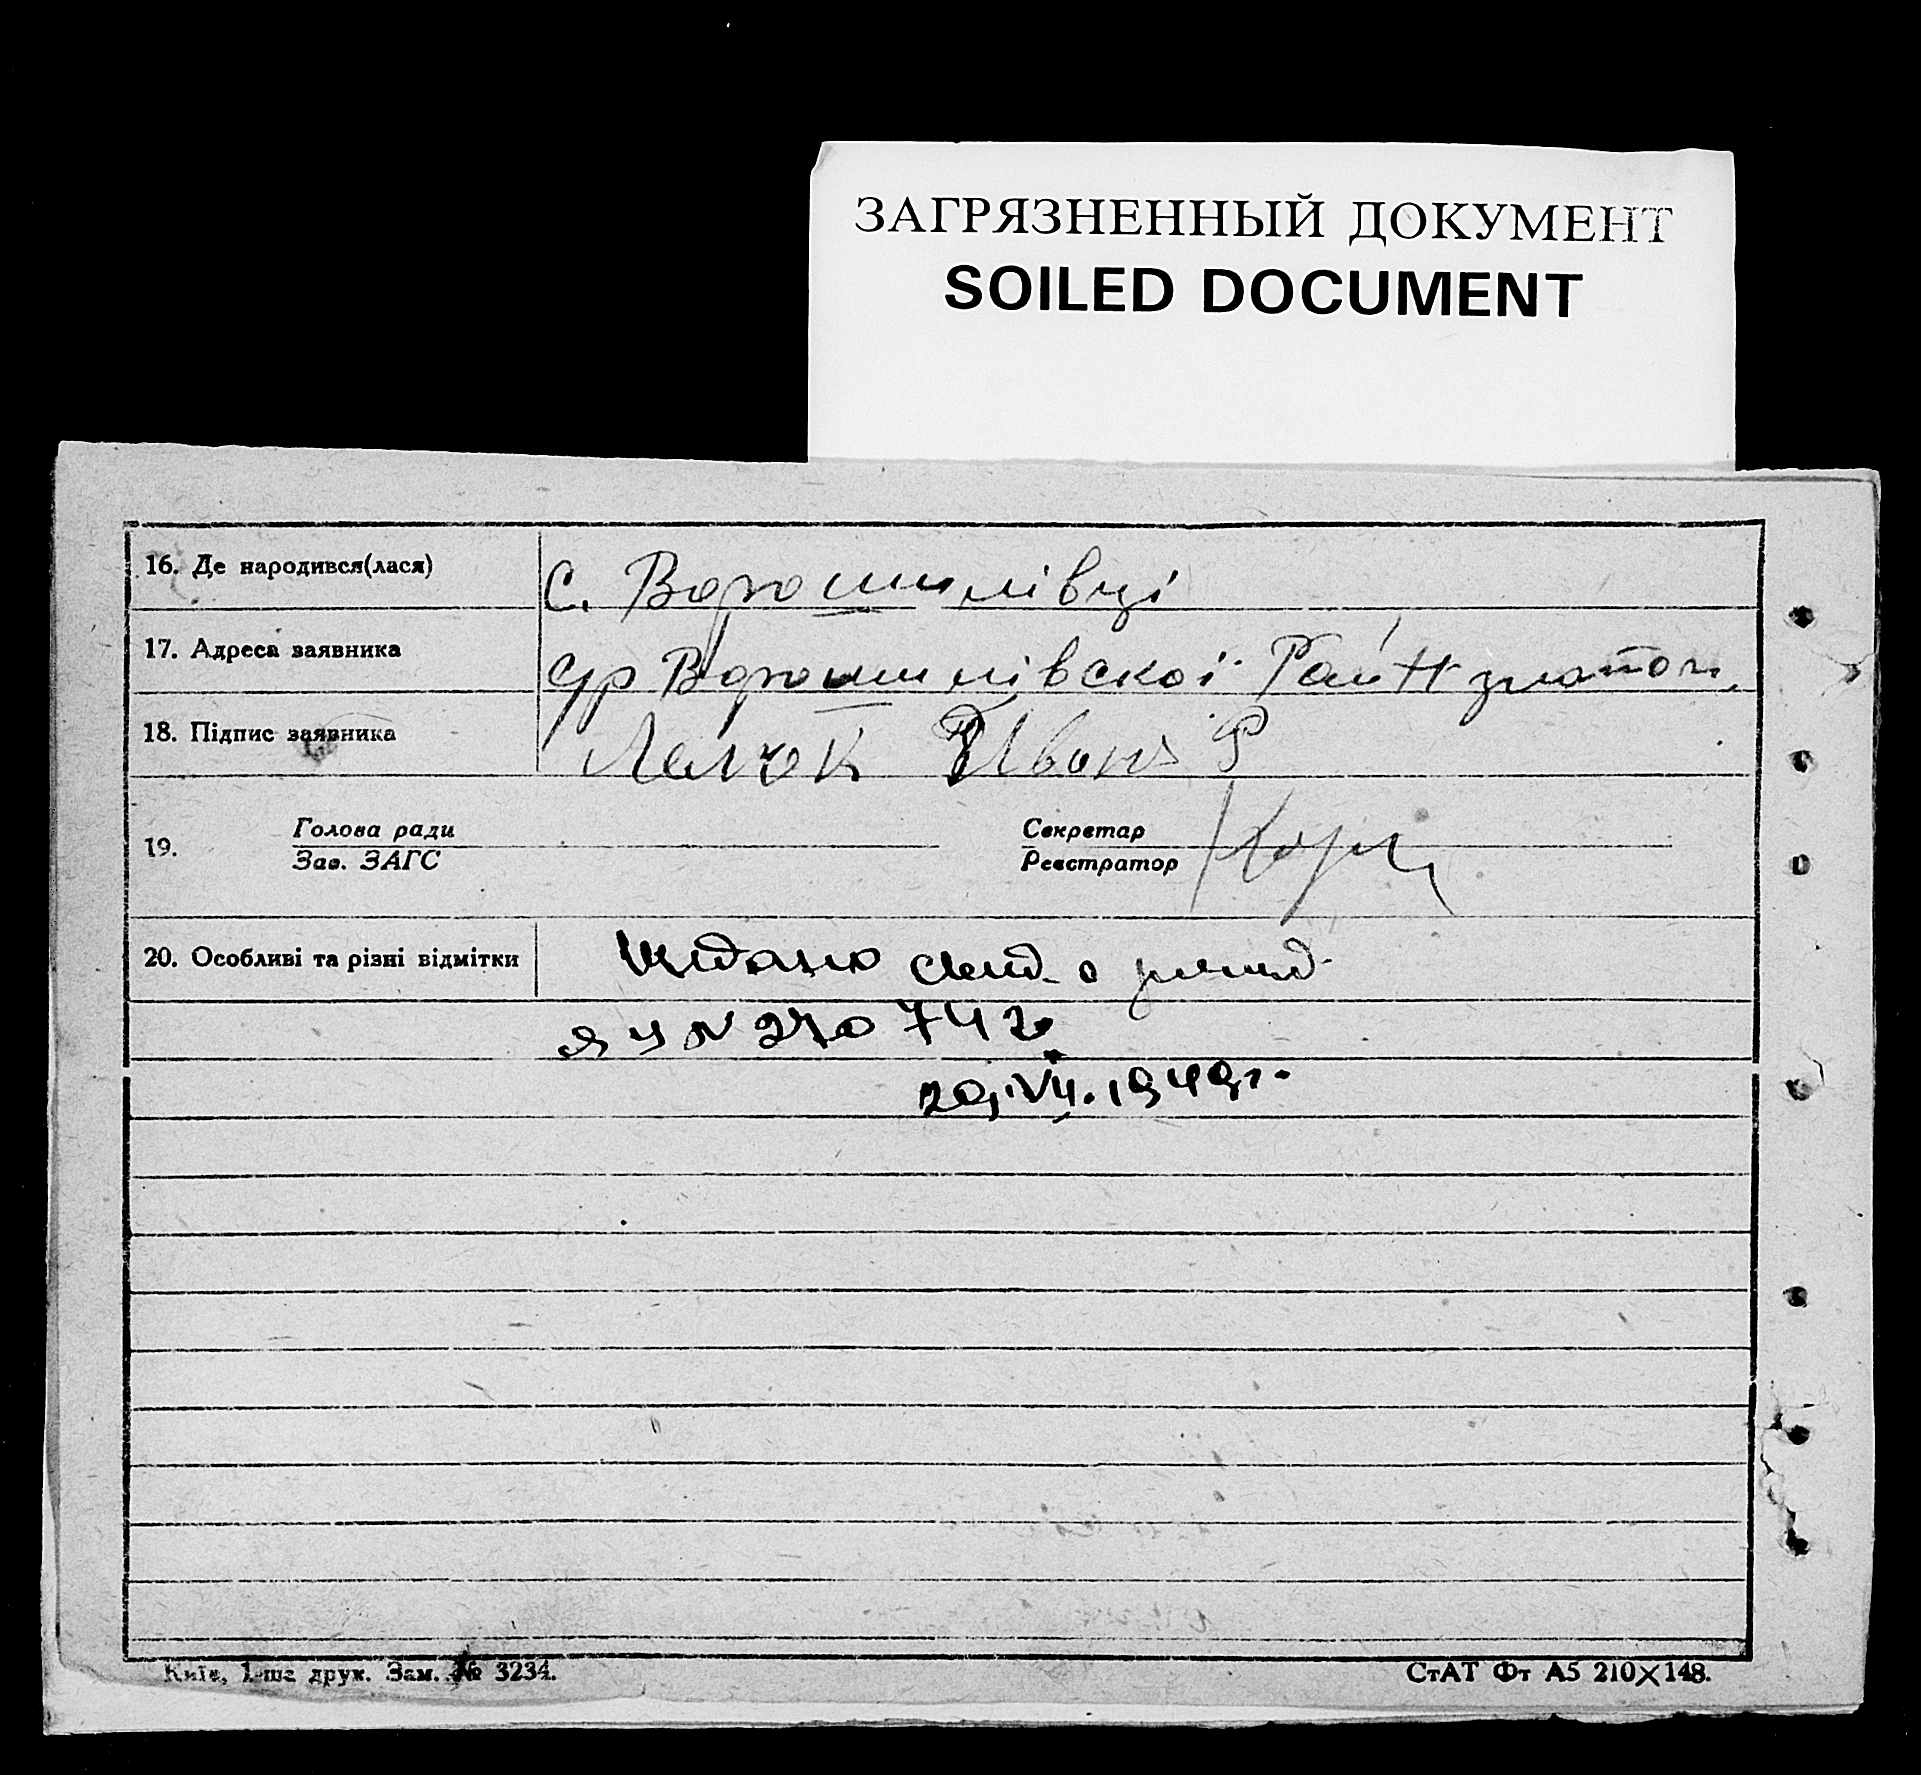 ЗАГРЯЗНЕННЫЙ ДОКУМЕНТ
SOILED DOCUMENT
16. Де народився(лася) с. Ворошилівці
17. Адреса заявника с/р Ворошилівскої Рай Н
18. Підпис заявника Іван
19. Голова ради Секретар
Зав. ЗАГС Реєстратор
20. Особливі та різні відмітки Видано свид. о рожд.
ЯЧ № 270742
20.VII.1949г.
Київ, 1-ша друк. Зам. № 3234. СтАТ Фт А5 210×148.